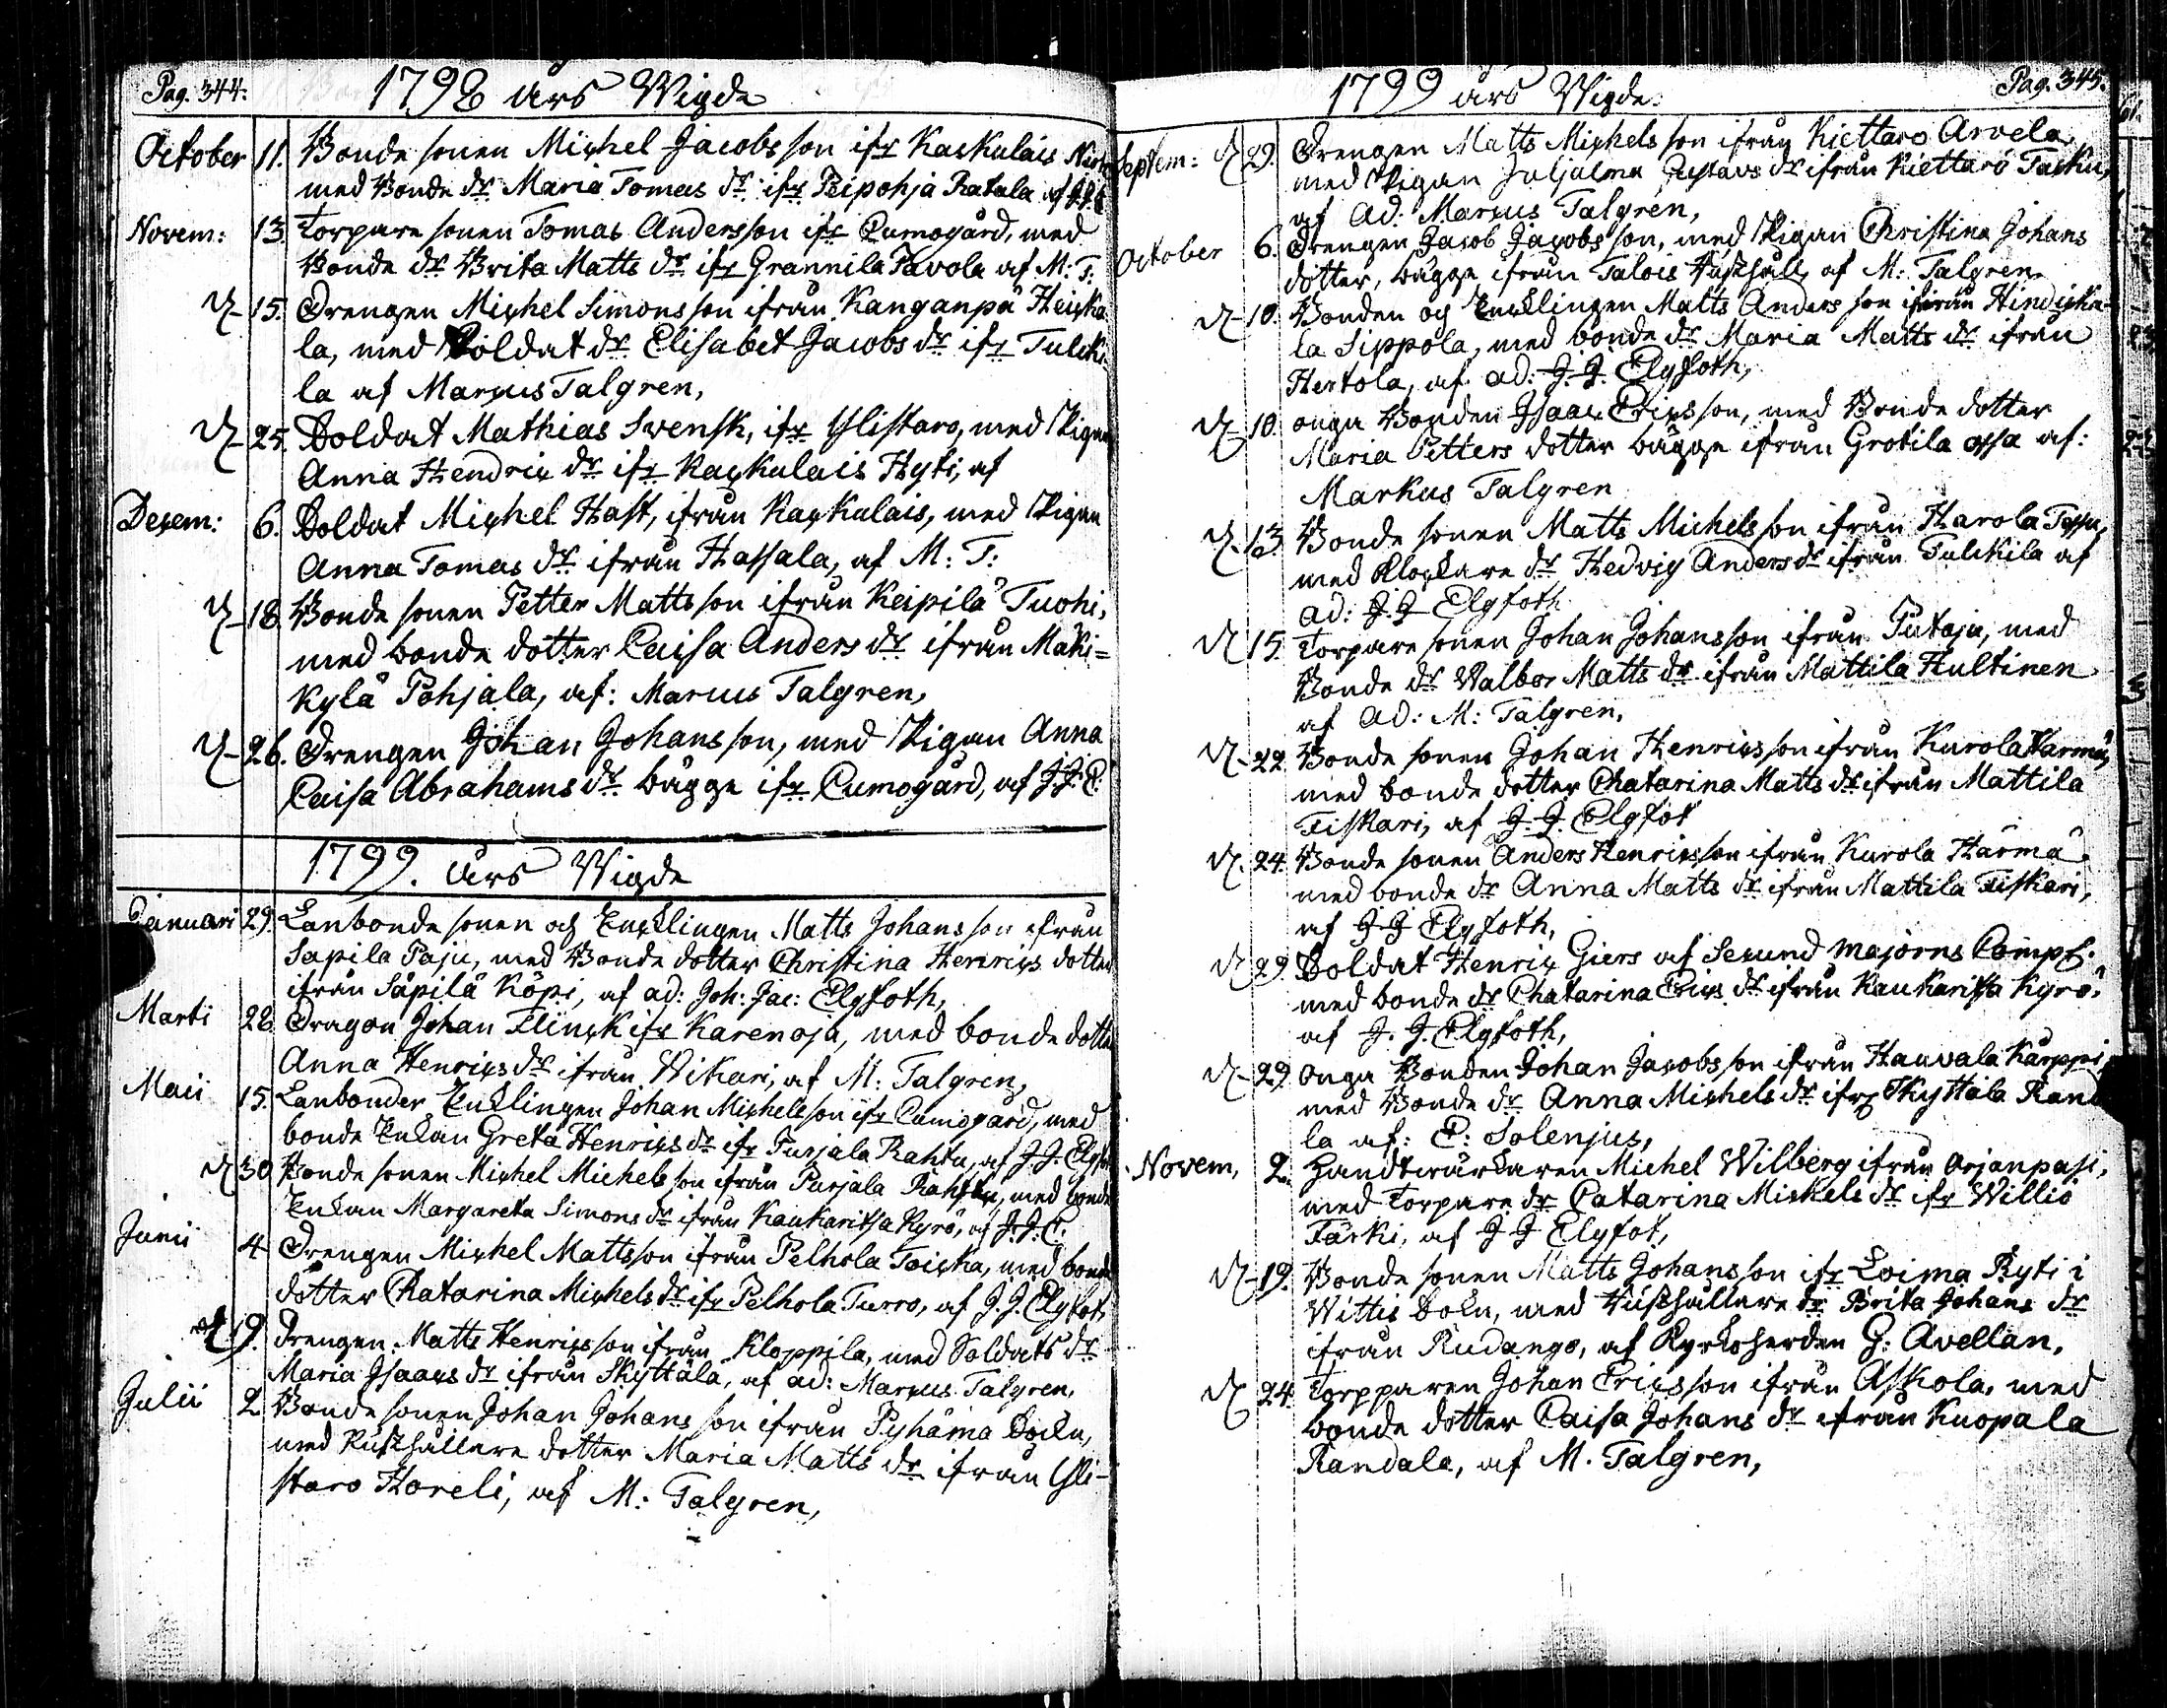 Pag. 344.
1798 års Wigde
October 11. Bonde sonen Michel Jacobs son ifr Kackulais
med Bonde dr Maria Tomas dr ifr Peipohja Ratala af J.J.E
Novem: 13. Torpare sonen Tomas Andersson ifr Cumogård, med
Bonde dr Brita Matts dr ifr Grannila Pavola af M: T.
d 15. Drengen Michel Simons son ifrån Kanganpä Heicka
la, med Soldat dr Elisabet Jacobs dr ifr Tulcki-
la af Marcus Talgren,
d 25. Soldat Mathias Svensk, ifr Ylistaro, med Pigan
Anna Hendric dr ifr Kackulais Hyti, af
Decem: 6. Soldat Michel Hast, ifrån Kackulais, med Pigan
Anna Tomas dr ifrån Hassala, af M: T:
d 18. Bonde sonen Petter Matts son ifrån Keipilä Tuohi,
med bonde dotter Caisa Anders dr ifrån Mäki=
kylä Pohjala, af: Marcus Talgren,
d 26. Drengen Johan Johans son, med Pigan Anna
Caisa Abrahams dr bägge ifr Cumogård, af J.J.E.
1799. års Wigde
Januari 29. Lanbonde sonen och Encklingen Matts Johans son ifrån
Sapila Paju, med Bonde dotter Christina Henrics dotter
ifrån Säpilä Köpi, af ad: Joh: Jac: Elgfoth,
Marti 28. Dragon Johan Flinck ifr Karenoja, med bonde dotter
Anna Henrics dr ifrån Wikari, af M: Talgren,
Maii 15. Lanbonden Encklingen Johan Michels son ifr Cumogård, med
bonde Enckan Greta Henrics dr ifr Purjala Rahtu, af J.J. Elgfot
d 30 Bonde sonen Michel Michels son ifrån Purjala Rahtu, med bonde
Enckan Margareta Simons dr ifrån Kaukaritsa Kyrö, af J.J.E.
Junii 4 Drengen Michel Mattsson ifrån Pelhola Toicka, med bonde
dotter Chatarina Michels dr ifr Pelhola Turro, af J.J. Elgfot,
d 19. Drengen Matts Henrics son ifrån Kloppila, med Soldats dr
Maria Isaacs dr ifrån Skyttälä, af ad: Marcus Talgren,
Julii 2 Bonde sonen Johan Johans son ifrån Pyhäma Sockn,
med Rusthållare dotter Maria Matts dr ifrån Yli-
staro Horeli, af M: Talgren,
Pag. 345.
1799 års Wigde.
Septem: d 29. Drengen Matts Michels son ifrån Kiettaro Arvela,
med Pigan Juljalma Gustavs dr ifrån Kiettarö Tasku,
af Ad: Marcus Talgren,
October 6. Drengen Jacob Jacobs son, med Pigan Christina Johans
dotter, bägge ifrån Talois Rusthåll, af M: Talgren.
d 10. Bonden och Encklingen Matts Anders son ifrån Hindicka-
la Sippola, med bonde dr Maria Matts dr ifrån
Hertola, af ad: J.J. Elgfoth,
d 10. unga Bonden Isaac Erics son, med Bonde dotter
Maria Petters dotter bägge ifrån Grotila af:
Markus Talgren
d 13. Bonde sonen Matts Michels son ifrån Harola
med Klockare dr Hedvig Anders dr ifrån Tulckila af
ad: J.J Elgfoth.
d 15. Torpare sonen Johan Johansson ifrån Putaja, med
Bonde dr Walbor Matts dr ifrån Mattila Hultinen
af ad: M: Talgren,
d 22. Bonde sonen Johan Henrics son ifrån Kurola Härmä,
med bonde dotter Chatarina Matts dr ifrån Mattila
Fiskari, af J.J. Elgfot
d 24. Bonde sonen Anders Henrics son ifrån Kurola Härmä.
med bonde dr Anna Matts dr ifrån Mattila Fiskari,
af J J Elgfoth,
d 29. Soldat Henric Giers af Secund majorns Comp:
med bonde dr Chatarina Erics dr ifrån Kaukaritsa Kyrö.
af J. J. Elgfoth,
d 29. Unga Bonden Johan Jacobs son ifrån Hauvala Kärppi,
med Bonde dr Anna Michels dr ifr Skyttälä
la af: E: Solenjus,
Novem, 2. Handtwärckaren Michel Wilberg ifrån Arjanpasi,
med Torpare dr Catarina Mickels dr ifr Williö
Färki, af J J Elgfot,
d 19. Bonde sonen Matts Johans son ifr Loima Ryti i
Wittis Sockn, med Rusthållare dr Brita Johans dr
ifrån Rudango, af Kyrkoherden G: Avellan,
d 24. Torpparen Johan Ericsson ifrån Askola, med
bonde dotter Caisa Johans dr ifrån Kuopala
Randala, af M. Talgren,